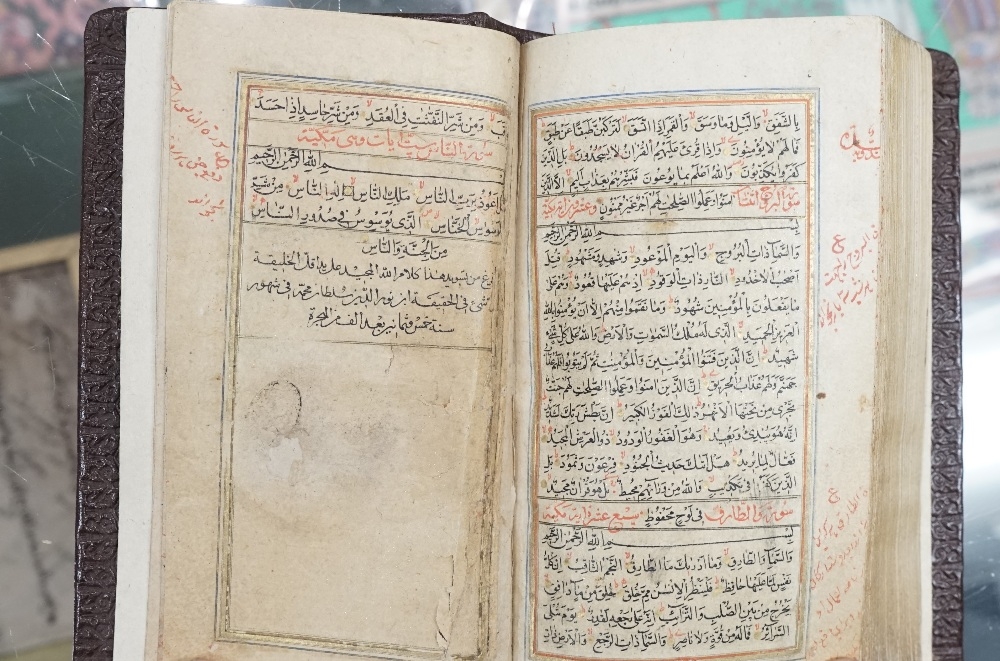 بالشفق والليل وما وسق والقمر اذا اتسق لتركبن طبقا عن طبق
فما لهم لا يؤمنون واذا قرئ عليهم القران لا يسجدون بل الذين
كفروا يكذبون والله اعلم بما يوعون فبشرهم بعذاب اليم الا الذين
امنوا وعملوا الصلحت لهم اجر غير ممنون
بسم الله الرحمن الرحيم
والسماء ذات البروج واليوم الموعود وشاهد ومشهود قتل
اصحب الاخدود النار ذات الوقود اذ هم عليها قعود وهم على
ما يفعلون بالمؤمنين شهود وما نقموا منهم الا ان يؤمنوا بالله
العزيز الحميد الذى له ملك السموات والارض والله على كل شئ
شهيد ان الذين فتنوا المؤمنين والمؤمنت ثم لم يتوبوا فلهم عذاب
جهنم ولهم عذاب الحريق ان الذين امنوا وعملوا الصلحت لهم جنت
تجرى من تحتها الانهر ذلك الفوز الكبير ان بطش ربك لشديد
انه هو يبدئ ويعيد وهو الغفور الودود ذو العرش المجيد
فعال لما يريد هل اتك حديث الجنود فرعون وثمود بل
الذين كفروا فى تكذيب والله من ورائهم محيط بل هو قران مجيد
فى لوح محفوظ سورة الطارق سبع عشر اية مكية
بسم الله الرحمن الرحيم
والسماء والطارق وما ادريك ما الطارق النجم الثاقب ان كل
نفس لما عليها حافظ فلينظر الانسن مم خلق خلق من ماء دافق
يخرج من بين الصلب والترائب انه على رجعه لقادر يوم تبلى
السرائر فما له من قوة ولا ناصر والسماء ذات الرجع والارض ذات
وقب ومن شر النفثت فى العقد ومن شر حاسد اذا حسد
سورة الناس ست ايات وهى مكية
بسم الله الرحمن الرحيم
قل اعوذ برب الناس ملك الناس اله الناس من شر
الوسواس الخناس الذى يوسوس فى صدور الناس
من الجنة والناس
فرغ من تسويد هذا كلام الله المجيد على يد اقل الخليقة
لا شئ فى الحقيقة ابن نور الدين سلطان محمد فى شهور
سنة خمس وثمانين بعد الف من الهجرة